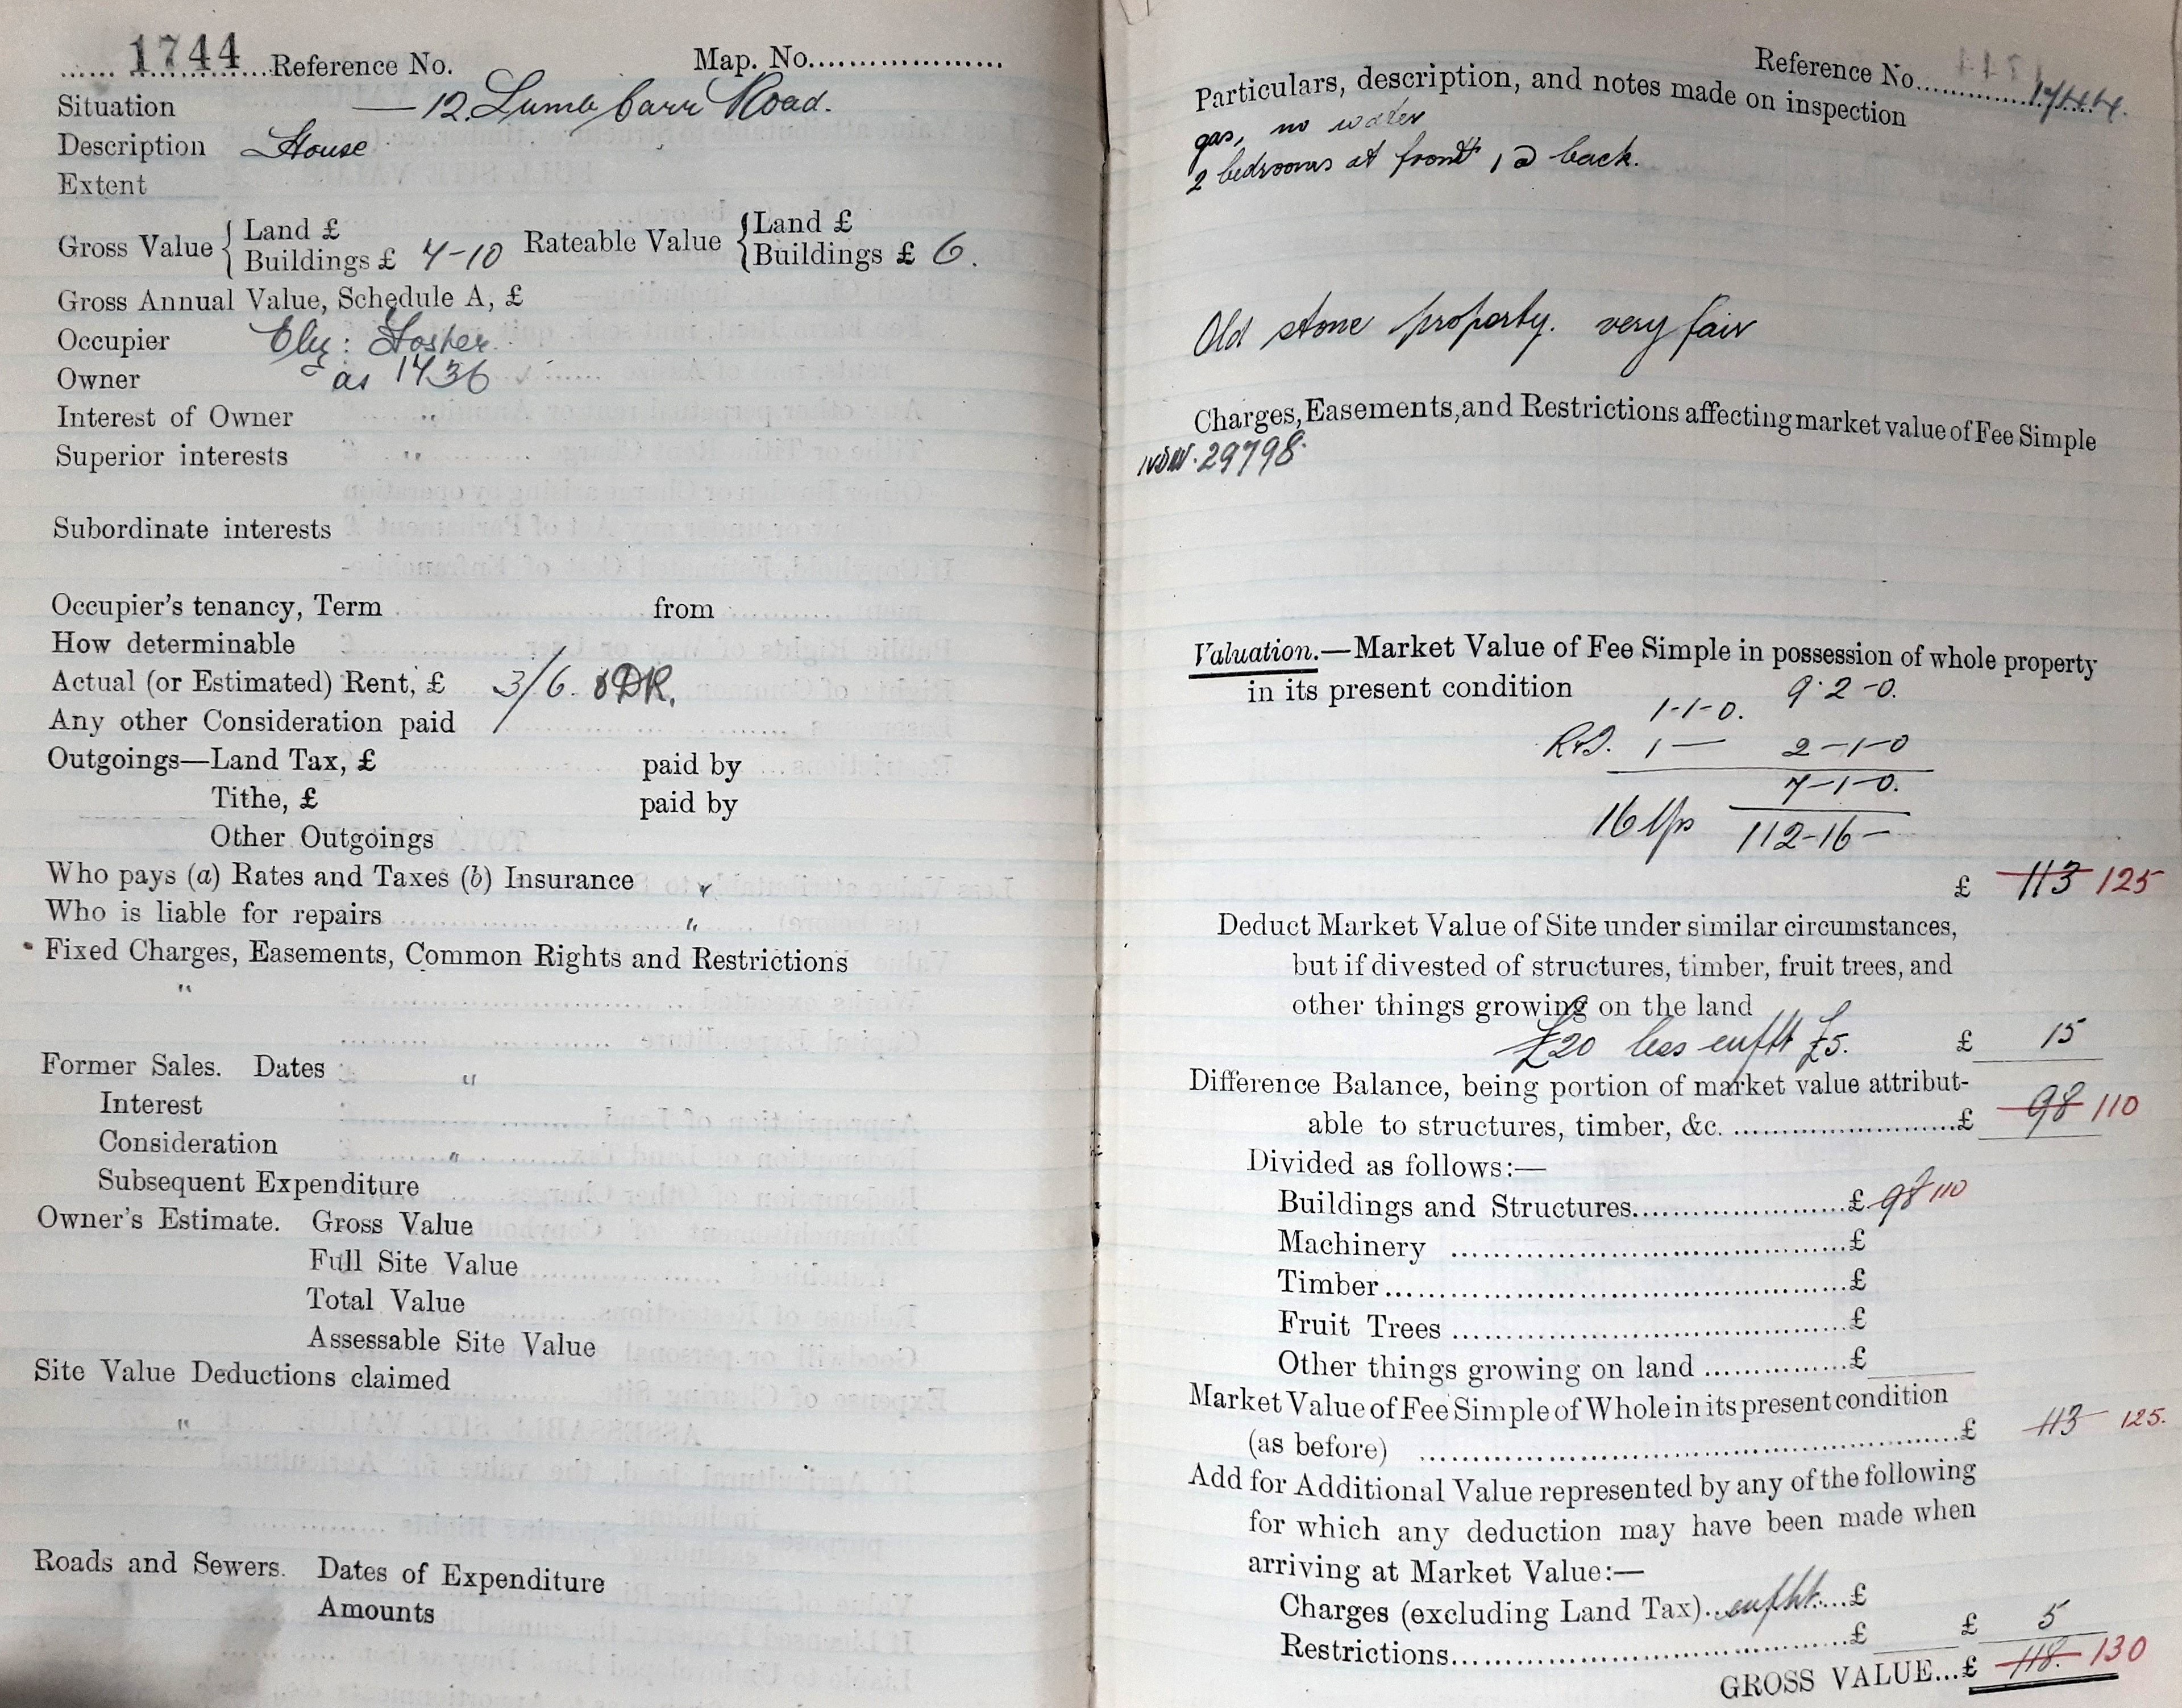 1744 Reference No. Map. No.
Situation — 12 Lumb Carr Road.
Description House
Extent
Gross Value { Land £
Buildings £ 4-10
Rateable Value { Land £
Buildings £ 6.
Gross Annual Value, Schedule A, £
Occupier Eliz: Foster
Owner as 1736
Interest of Owner "
Superior interests "
Subordinate interests
Occupier's tenancy, Term from
How determinable
Actual (or Estimated) Rent, £ 3/6.
Any other Consideration paid
Outgoings—Land Tax, £ paid by
Tithe, £ paid by
Other Outgoings
Who pays (a) Rates and Taxes (b) Insurance "
Who is liable for repairs "
Fixed Charges, Easements, Common Rights and Restrictions
"
Former Sales. Dates "
Interest
Consideration "
Subsequent Expenditure
Owner's Estimate. Gross Value
Full Site Value
Total Value
Assessable Site Value
Site Value Deductions claimed
"
Roads and Sewers. Dates of Expenditure
Amounts
Reference No. 1744.
Particulars, description, and notes made on inspection
gas, no water
2 bedrooms at front, 1 @ back.
Old stone property. very fair
Charges, Easements, and Restrictions affecting market value of Fee Simple
29798.
Valuation.—Market Value of Fee Simple in possession of whole property
in its present condition
9-2-0.
1-1-0.
R&I. 1— 2-1-0
7-1-0.
16 yps 112-16-
£ 113 125
Deduct Market Value of Site under similar circumstances,
but if divested of structures, timber, fruit trees, and
other things growing on the land
£20 less enfht £5. £ 15
Difference Balance, being portion of market value attribut-
able to structures, timber, &c. £ 98 110
Divided as follows:—
Buildings and Structures £ 98 110
Machinery £
Timber £
Fruit Trees £
Other things growing on land £
Market Value of Fee Simple of Whole in its present condition
(as before) £ 113 125.
Add for Additional Value represented by any of the following
for which any deduction may have been made when
arriving at Market Value:—
Charges (excluding Land Tax) enfht. £
Restrictions £ £ 5
GROSS VALUE...£ 118. 130